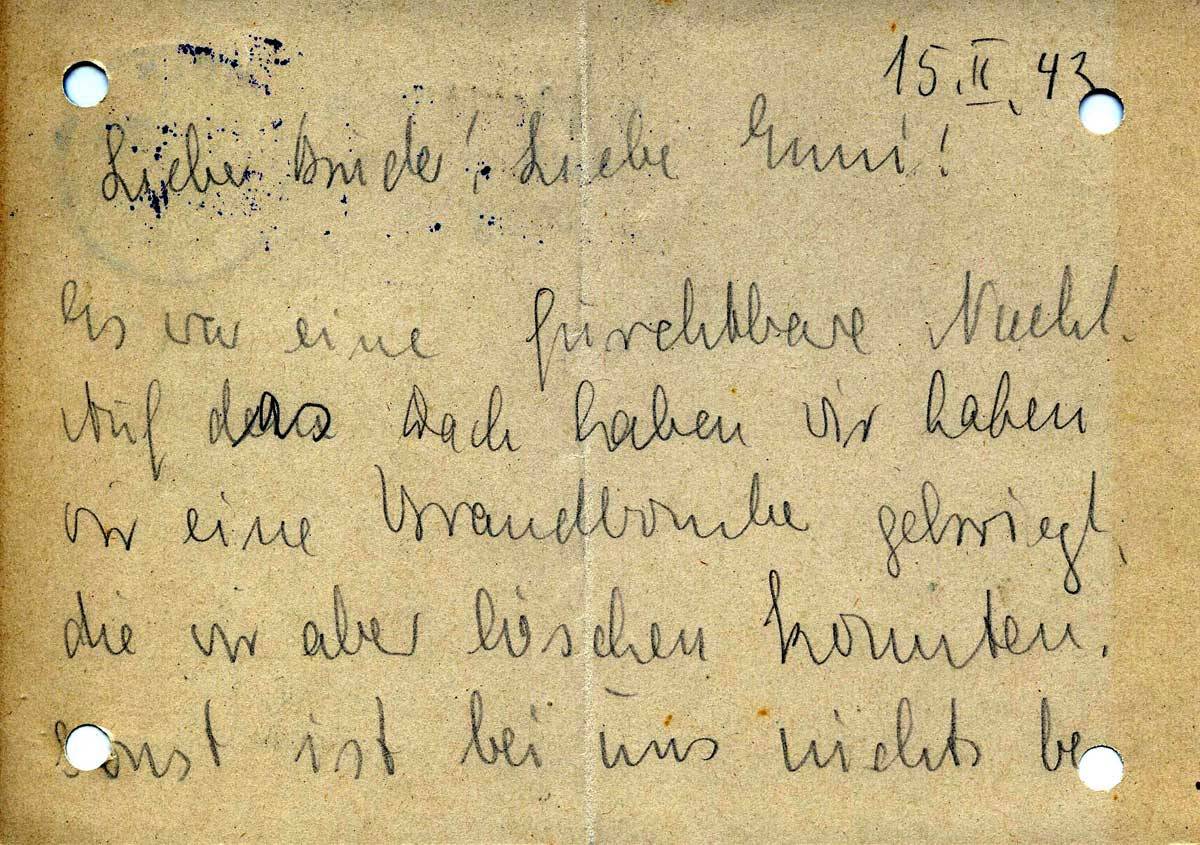 15.II.43
Lieber Bruder! Liebe Emmi!
Es war eine furchtbare Nacht.
Auf das Dach haben wir haben
wir eine Brandbombe gekriegt,
die wir aber löschen konnten.
Sonst ist bei uns nichts be